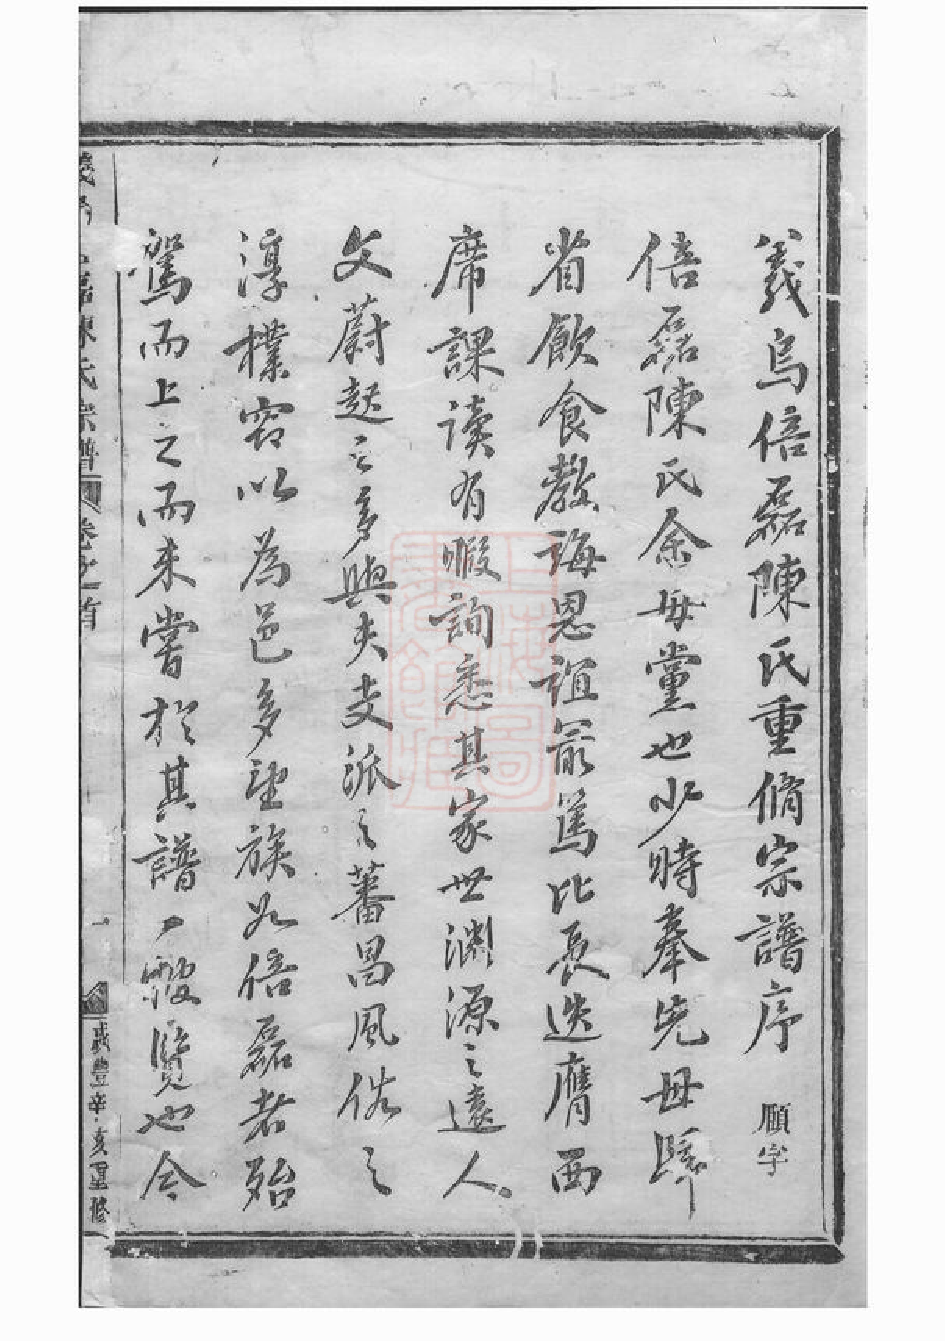 義烏倍磊陳氏重脩宗譜序 願字
倍磊陳氏余母黨也少時奉先母歸
省飲食教誨恩誼最篤比長迭膺西
席課讀有暇詢悉其家世淵源之遠人
文蔚起之多與夫支派之蕃昌風俗之
淳樸窃以為邑多望族如倍磊者殆
駕而上之而未嘗於其譜一覈覽也今
陳氏宗譜 卷之首 一 咸豐辛亥重修